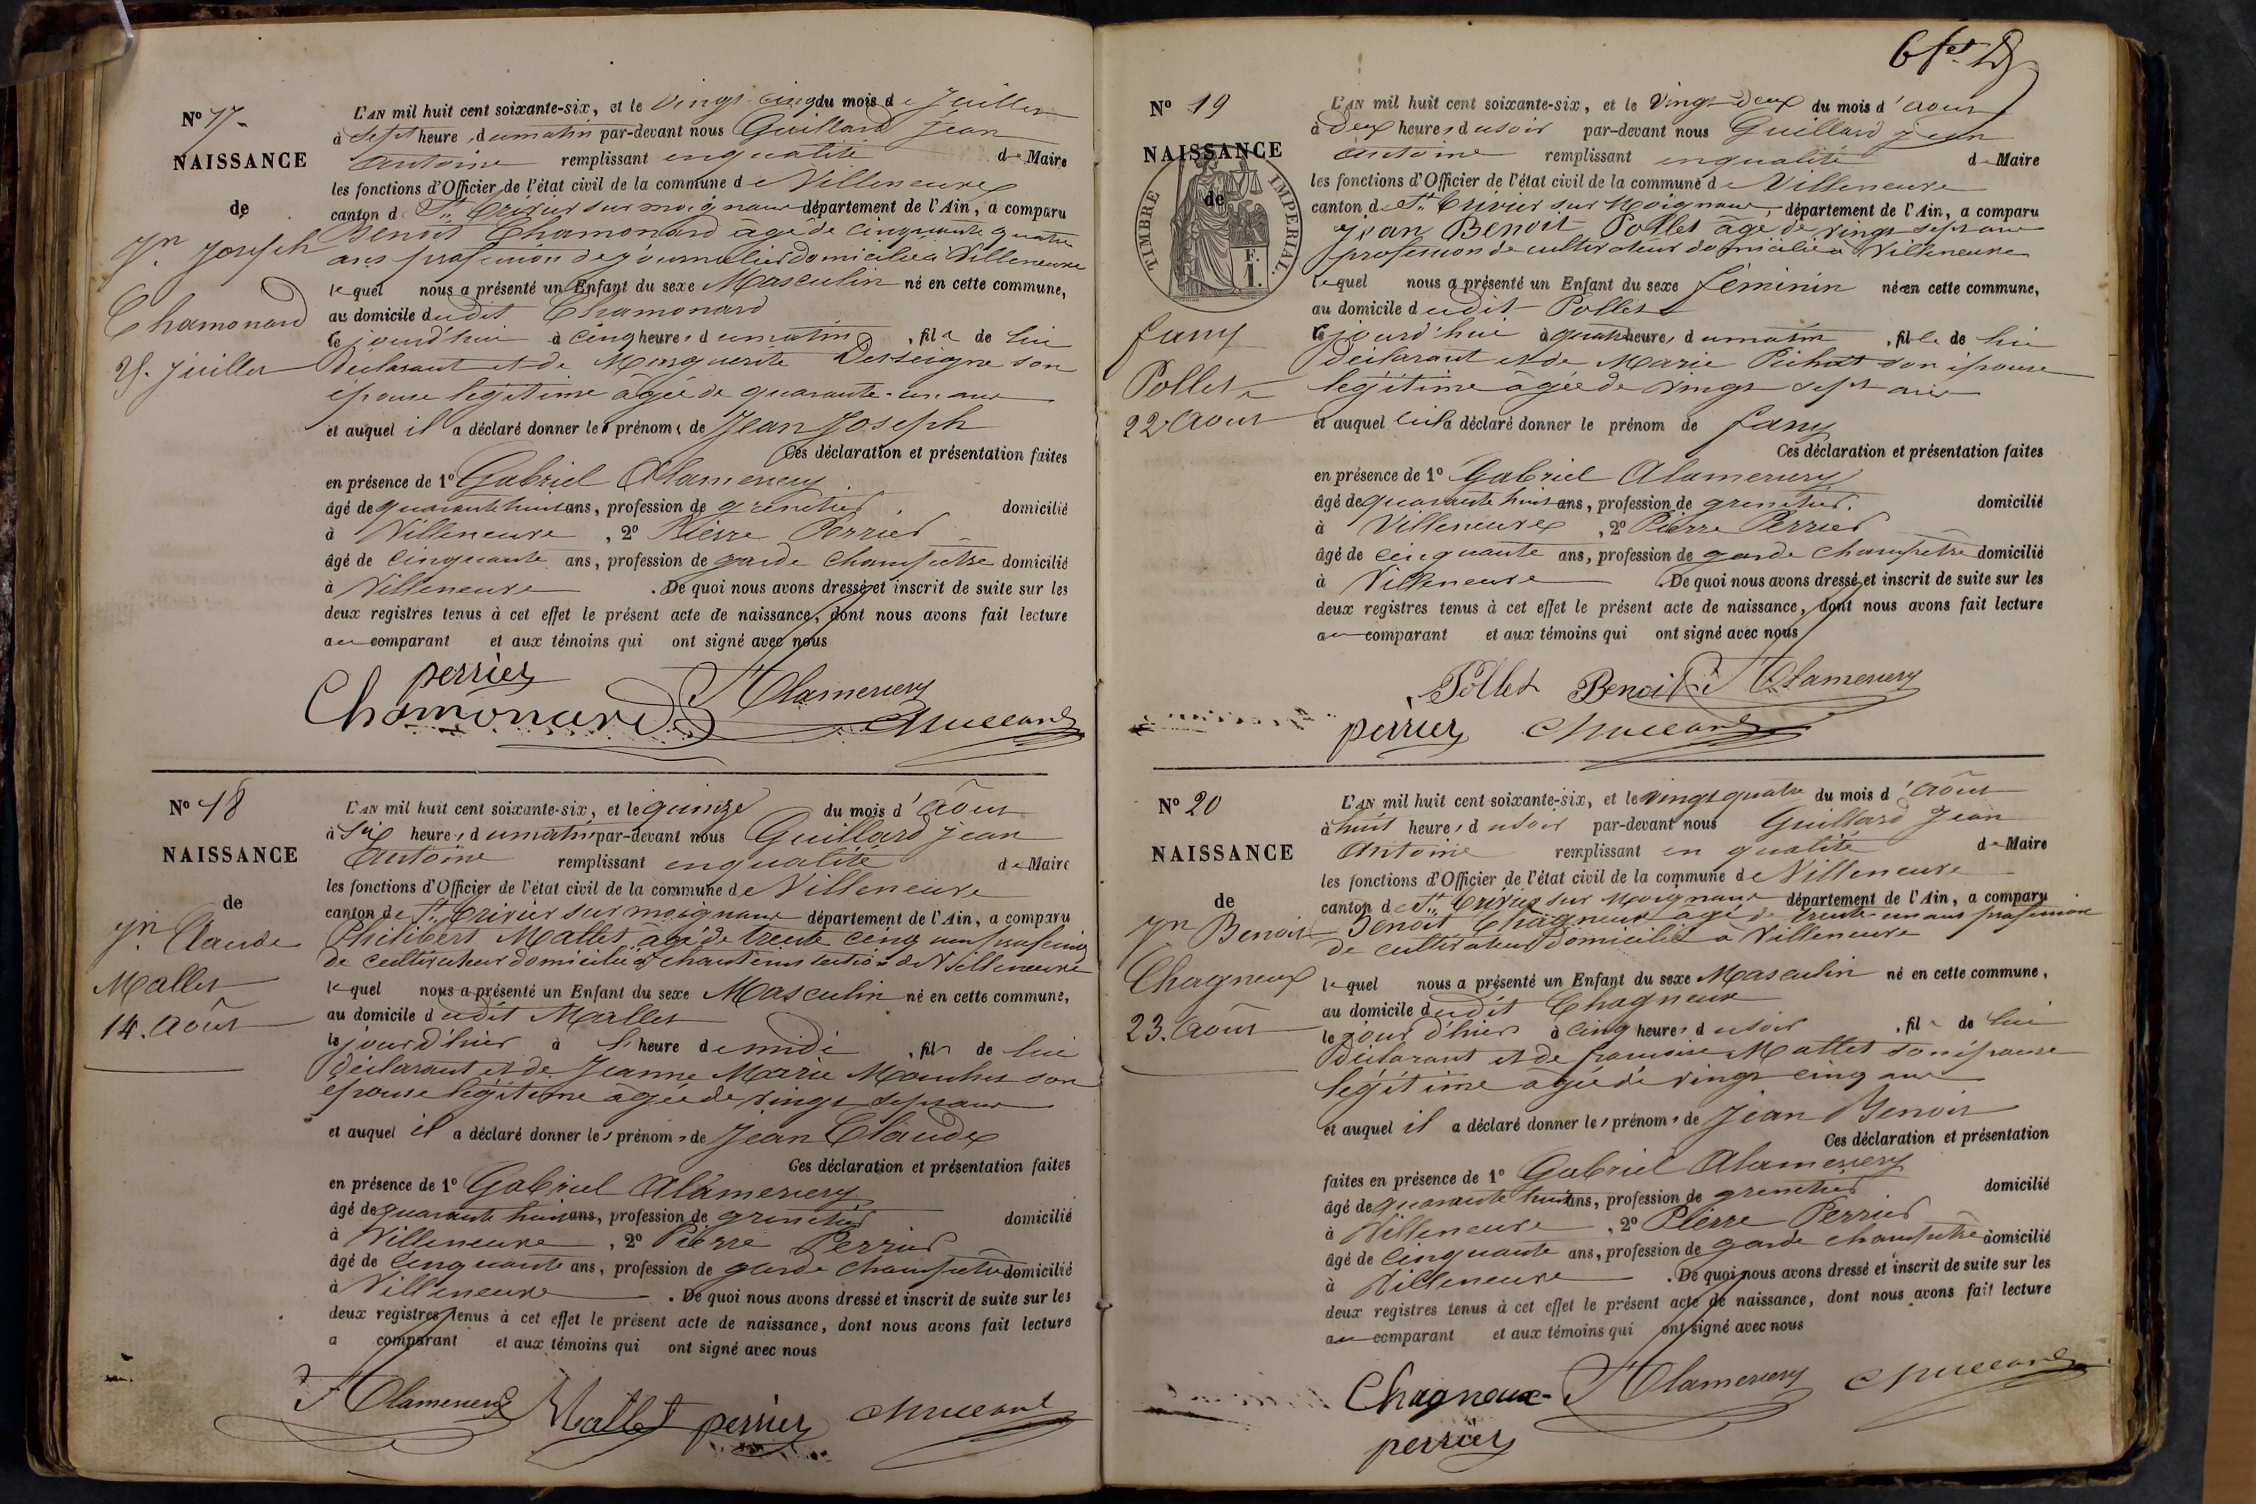 N° 17
NAISSANCE
de
Jn. Joseph
Chamonard
25. Juillet
L'AN mil huit cent soixante-six, et le vingt-cinq du mois de Juillet
à sept heures du matin par-devant nous Guillard Jean
Antoine remplissant en qualité de Maire
les fonctions d'Officier de l'état civil de la commune de Villeneuve
canton de St. Trivier sur moignans département de l'Ain, a comparu
Benoit Chamonard âgé de cinquante quatre
ans profession de journalier domicilié à Villeneuve
lequel nous a présenté un Enfant du sexe Masculin né en cette commune,
au domicile dudit Chamonard
ce jourd'hui à cinq heures du matin, fils de lui
Déclarant et de Marguerite Desseigne son
épouse légitime âgée de quarante-un ans
et auquel il a déclaré donner les prénoms de Jean Joseph
Ces déclaration et présentation faites
en présence de 1° Gabriel Alamercery
âgé de quarante huit ans, profession de grenetier domicilié
à Villeneuve, 2° Pierre Perrier
âgé de cinquante ans, profession de garde champêtre domicilié
à Villeneuve. De quoi nous avons dressé et inscrit de suite sur les
deux registres tenus à cet effet le présent acte de naissance, dont nous avons fait lecture
au comparant et aux témoins qui ont signé avec nous
perrier
Chamonard Alamercery
N° 18
NAISSANCE
de
Jn Claude
Mallet
14. Août
L'AN mil huit cent soixante-six, et le quinze du mois d'Août
à Six heures du matin par-devant nous Guillard Jean
Antoine remplissant en qualité de Maire
les fonctions d'Officier de l'état civil de la commune de Villeneuve
canton de St. Trivier sur moignans département de l'Ain, a comparu
Philibert Mallet âgé de trente cinq ans profession
de cultivateur domicilié à section de Villeneuve
lequel nous a présenté un Enfant du sexe Masculin né en cette commune,
au domicile dudit Mallet
le jour d'hier à l'heure de midi, fils de lui
Déclarant et de Jeanne Marie son
épouse légitime âgée de vingt sept ans
et auquel il a déclaré donner les prénoms de Jean Claude
Ces déclaration et présentation faites
en présence de 1° Gabriel Alamercery
âgé de quarante huit ans, profession de grenetier domicilié
à Villeneuve, 2° Pierre Perrier
âgé de cinquante ans, profession de garde champêtre domicilié
à Villeneuve. De quoi nous avons dressé et inscrit de suite sur les
deux registres tenus à cet effet le présent acte de naissance, dont nous avons fait lecture
a comparant et aux témoins qui ont signé avec nous
Alamercery Mallet perrier
N° 19
NAISSANCE
de
TIMBRE IMPERIAL.
F.
1.
fany
Pollet
22 Aout
L'AN mil huit cent soixante-six, et le vingt deux du mois d'aout
à deux heures du soir par-devant nous Guillard Jean
Antoine remplissant en qualité de Maire
les fonctions d'Officier de l'état civil de la commune de Villeneuve
canton de St. Trivier sur Moignans, département de l'Ain, a comparu
Jean Benoit Pollet âgé de vingt sept ans
profession de cultivateur domicilié à Villeneuve
lequel nous a présenté un Enfant du sexe féminin née en cette commune,
au domicile dudit Pollet
ce jourd'hui à quatre heures du matin, fille de lui
Déclarant et de Marie Pichat son épouse
légitime âgée de vingt sept ans
et auquel il a déclaré donner le prénom de fany
Ces déclaration et présentation faites
en présence de 1° Gabriel Alamercery
âgé de quarante huit ans, profession de grenetier. domicilié
à Villeneuve, 2° Pierre Perrier
âgé de cinquante ans, profession de garde champêtre domicilié
à Villeneuve. De quoi nous avons dressé et inscrit de suite sur les
deux registres tenus à cet effet le présent acte de naissance, dont nous avons fait lecture
au comparant et aux témoins qui ont signé avec nous
Pollet Benoit Alamercery
perrier
N° 20
NAISSANCE
de
Jn Benoit
Chagneux
23. Août
L'AN mil huit cent soixante-six, et le vingt quatre du mois d'Août
à huit heures du soir par-devant nous Guillard Jean
Antoine remplissant en qualité de Maire
les fonctions d'Officier de l'état civil de la commune de Villeneuve
canton de St. Trivier sur Moignans département de l'Ain, a comparu
Benoit Chagneux âgé de trente-un ans profession
de cultivateur domicilié à Villeneuve
lequel nous a présenté un Enfant du sexe Masculin né en cette commune,
au domicile dudit Chagneux
le jour d'hier à cinq heures du soir, fils de lui
Déclarant et de françoise Mallet son épouse
légitime âgée de vingt cinq ans
et auquel il a déclaré donner les prénoms de Jean Benoit
Ces déclaration et présentation
faites en présence de 1° Gabriel Alamercery
âgé de quarante huit ans, profession de grenetier domicilié
à Villeneuve, 2° Pierre Perrier
âgé de cinquante ans, profession de garde champêtre domicilié
à Villeneuve. De quoi nous avons dressé et inscrit de suite sur les
deux registres tenus à cet effet le présent acte de naissance, dont nous avons fait lecture
au comparant et aux témoins qui ont signé avec nous
Chagneux Alamercery
perrier